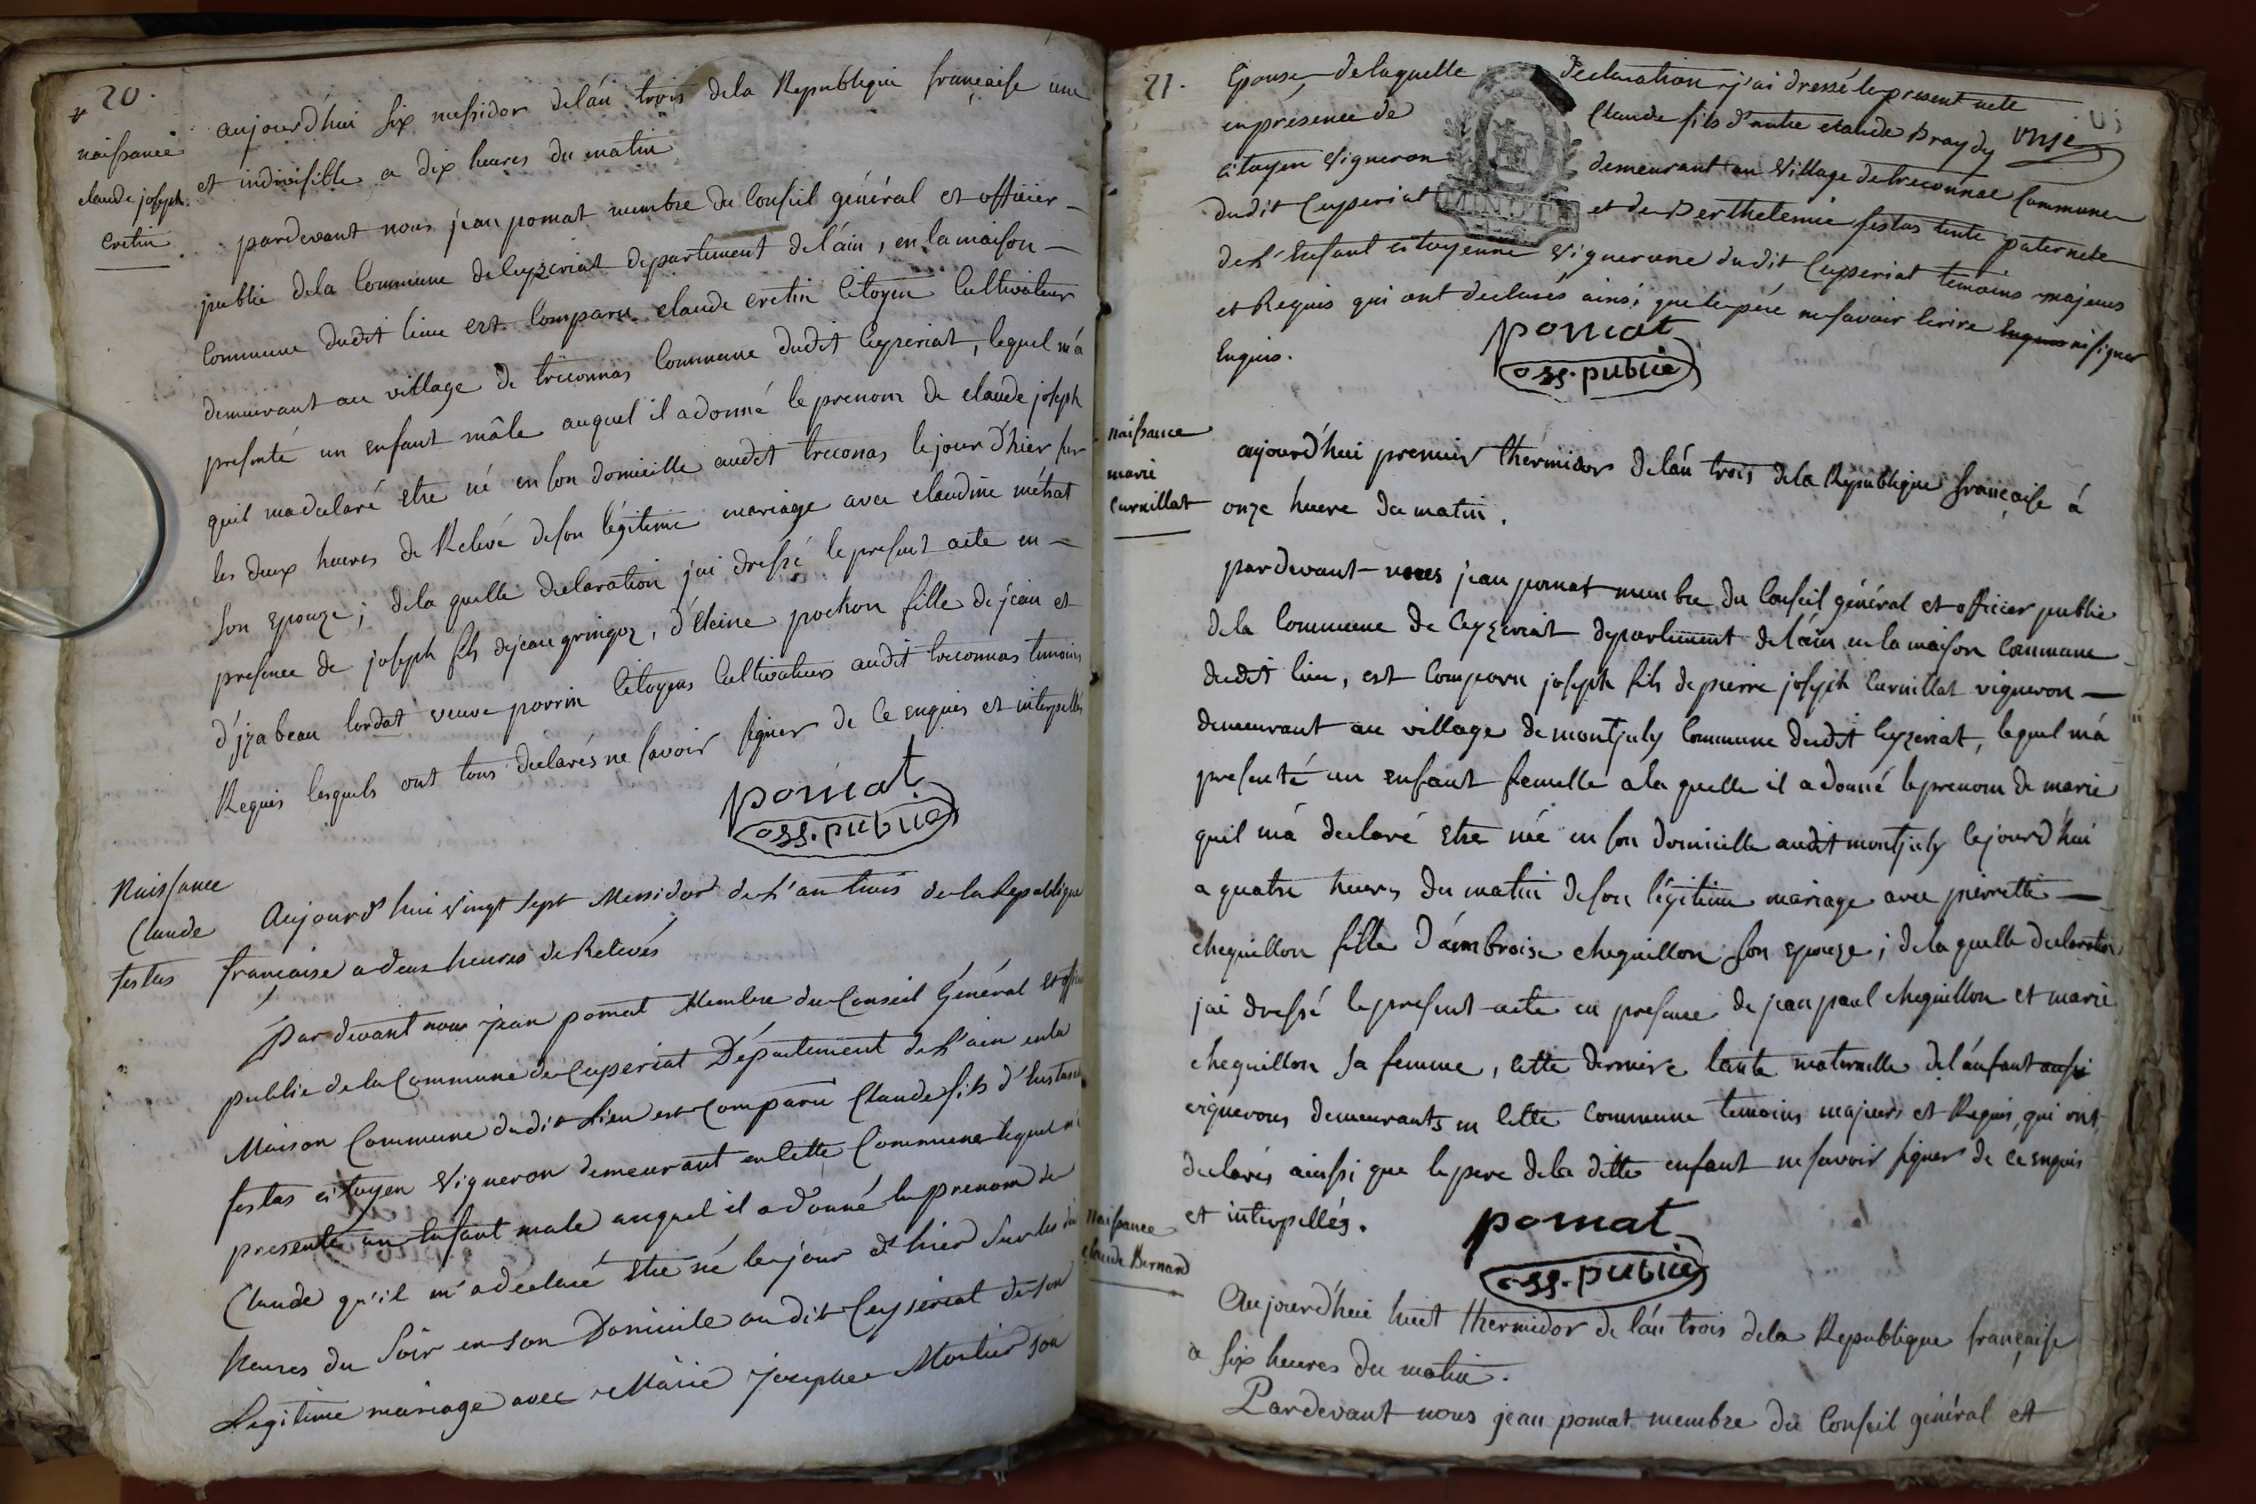 20.
naissance
claude joseph
cretin
aujourd'hui six messidor de lán trois dela Republique française une
et indivisible a dix heures du matin
pardevant nous jean pomat membre du Conseil général et officier
public dela Commune de Ceyzeriat departement de l'ain, en la maison
Commune dudit lieu est Comparu claude cretin Citoyen Cultivateur
demeurant au village de treconnas Commune dudit Ceyzeriat, lequel m'á
presenté un enfant mâle auquel il a donné le prenom de claude joseph
quil ma declaré etre né en son domicille audit treconas le jour d'hier sur
les deux heures de Relevé de son légitime mariage avec claudine métrat
son epouze; dela quelle declaration jai dressé le present acte en
presence de joseph fils de jean gringoz, d'éleine pochon fille de jean et
d'yzabeau lordat veuve povrin Citoyens Cultivateurs audit treconnas temoins
Requis lesquels ont tous declarés ne savoir signer de Ce enquis et interpellés
pomat
off. public
Naissance
Claude
festas
Aujourd'hui Vingt Sept Messidor de L'an trois de la Republique
française a deux heures de Relevés
Par devant nous jean pomat Membre du Conseil Général et offi
public de la Commune de Ceyseriat Département de L'ain en la
Maison Commune dudit Lieu est Comparu Claude fils d'
festas citoyen Vigneron demeurant en Cette Commune lequel m'a
presenté un Enfant male auquel il a donné le prenom de
Claude qu'il m'a declaré Etre né le jour d'hier Sur les dix
heures du Soir en son Domicile audit Ceyseriat de son
Legitime mariage avec Marie Josephe Mortier son
21.
Epouse de laquelle declaration j'ai dressé le present acte
onze
en présence de Claude fils d'autre claude Braydy
citoyen Vigneron demeurant au Village de treconnae Commune
MINUTE
dudit Ceyseriat et de Berthelemie festas tente paternele
de L'Enfant citoyenne Vignerone dudit Ceyseriat temoins majeurs
et Requis qui ont declarés ainsi que le pére ne savoir Ecrire Enquis ni signer
Enquis.
pomat
off. public
naissance
marie
Curnillat
aujourd'hui premier thérmidor de lán trois dela Republique française á
onze heure du matin.
par devant nous jean pomat membre du Conseil général et officier public
dela Commune de Ceyzeriat departement de láin en la maison Commune
dudit lieu, est Comparu joseph fils de pierre joseph Curnillat vigneron
demeurant au village de montjuly Commune dudit Ceyzeriat, lequel má
presenté un enfant femelle a la quelle il a donné le prenom de marie
quil má declaré etre née en son domicille audit montjuly le jour d'hui
a quatre heures du matin de son légitime mariage avec pierrette
chequillon fille d'ámbroise chequillon son epouze; de la quelle declaration
jai dressé le present acte en presence de jean paul chequillon et marie
chequillon sa femme, cette derniere tante maternelle de l'enfant aussi
vignerons demeurants en Cette Commune temoins majeurs et Requis, qui ont
declarés ainssi que le pere dela ditte enfant ne savoir signer de Ce enquis
et interpellés.
pomat
off. public
naissance
claude Bernard
Aujourd'hui huit thermidor de lán trois dela Republique française
a six heures du matin.
Pardevant nous jean pomat membre du Conseil général et